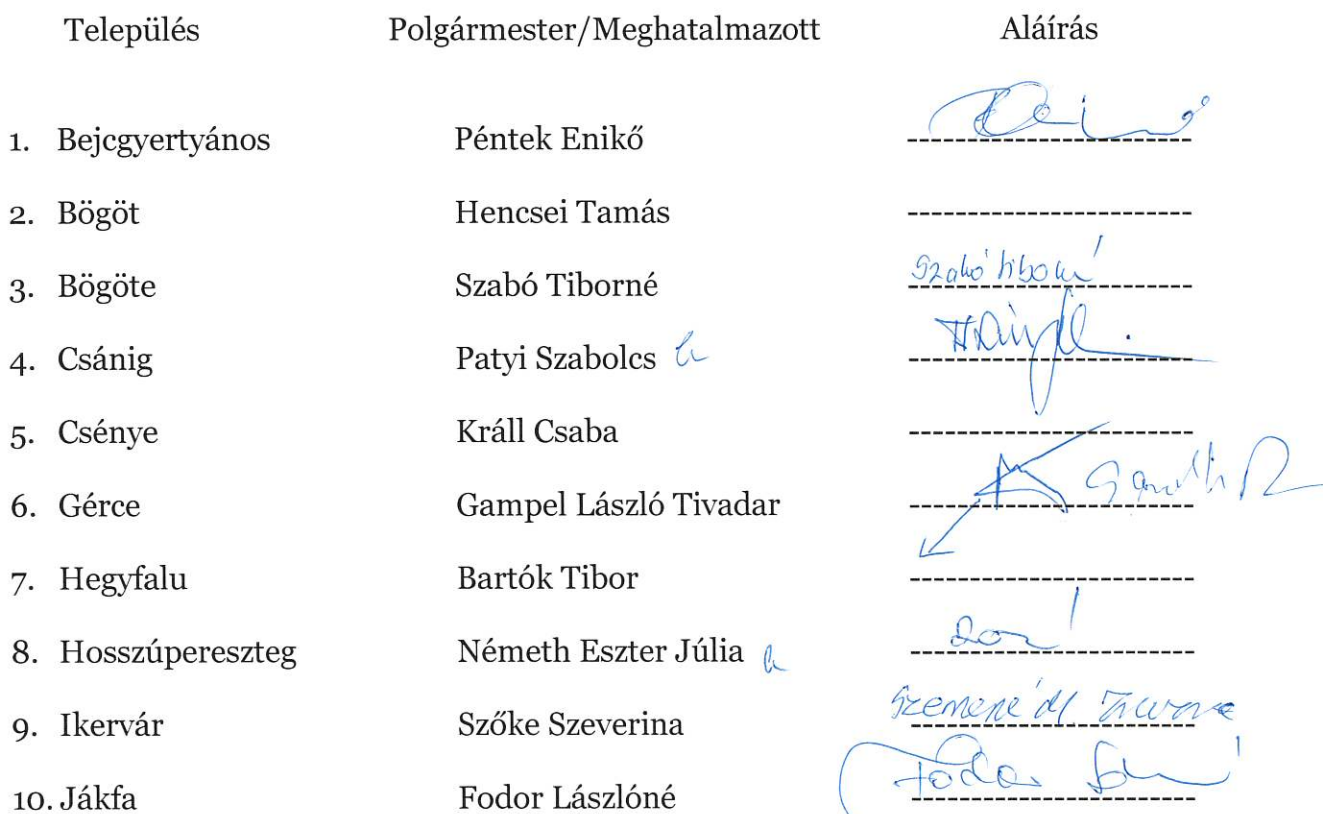 Település Polgármester/Meghatalmazott Aláírás
1. Bejcgyertyános Péntek Enikő
2. Bögöt Hencsei Tamás
3. Bögöte Szabó Tiborné Szabó Tiborné
4. Csánig Patyi Szabolcs
5. Csénye Králl Csaba
6. Gérce Gampel László Tivadar
7. Hegyfalu Bartók Tibor
8. Hosszúpereszteg Németh Eszter Júlia
9. Ikervár Szőke Szeverina
10. Jákfa Fodor Lászlóné Fodor